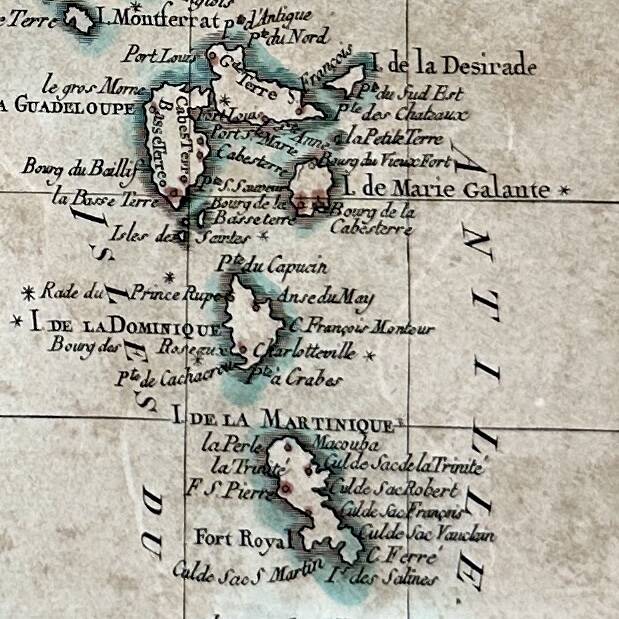 e Terre
I. Montferrat
Pte d'Antigue
Pte du Nord
Port Louis
Gde Terre
François
I. de la Desirade
le gros Morne
Pte du Sud Est
A GUADELOUPE
Pte des Chateaux
Basse Terre
Cabes Terre
Port Louis
Ste Anne
la Petite Terre
Port Ste Marie
Cabesterre
Bourg du Vieux Fort
Bourg du Baillif
Pte S. Sauveur
I. de Marie Galante *
la Basse Terre
Bourg de la
Basseterre
Bourg de la
Cabesterre
Isles des Saintes *
Pte du Capucin
* Rade du Prince Rupe
Anse du May
* I. DE LA DOMINIQUE
C. François Monteur
Bourg des Roseaux
Charlotteville *
Pte de Cachacrou
Pte à Crabes
I. DE LA MARTINIQUE
la Perle
Macouba
la Trinité
Cul de Sac de la Trinité
F S. Pierre
Cul de Sac Robert
Cul de Sac François
Fort Royal
Cul de Sac Vauclin
C. Ferré
Cul de Sac S. Martin
Is. des Salines
ISLES
DU
ANTILLE